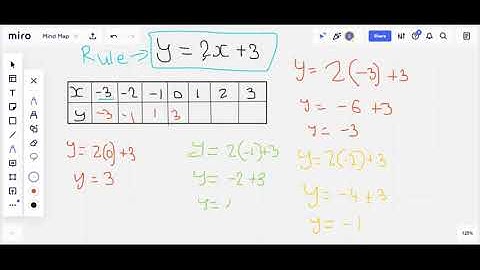 miro Mind Map Share
Rule → y = 2x + 3
x -3 -2 -1 0 1 2 3
y -3 -1 1 3
y = 2(-3) + 3
y = -6 + 3
y = -3
y = 2(0) + 3
y = 3
y = 2(-1) + 3
y = -2 + 3
y =
y = 2(-2) + 3
y = -4 + 3
y = -1